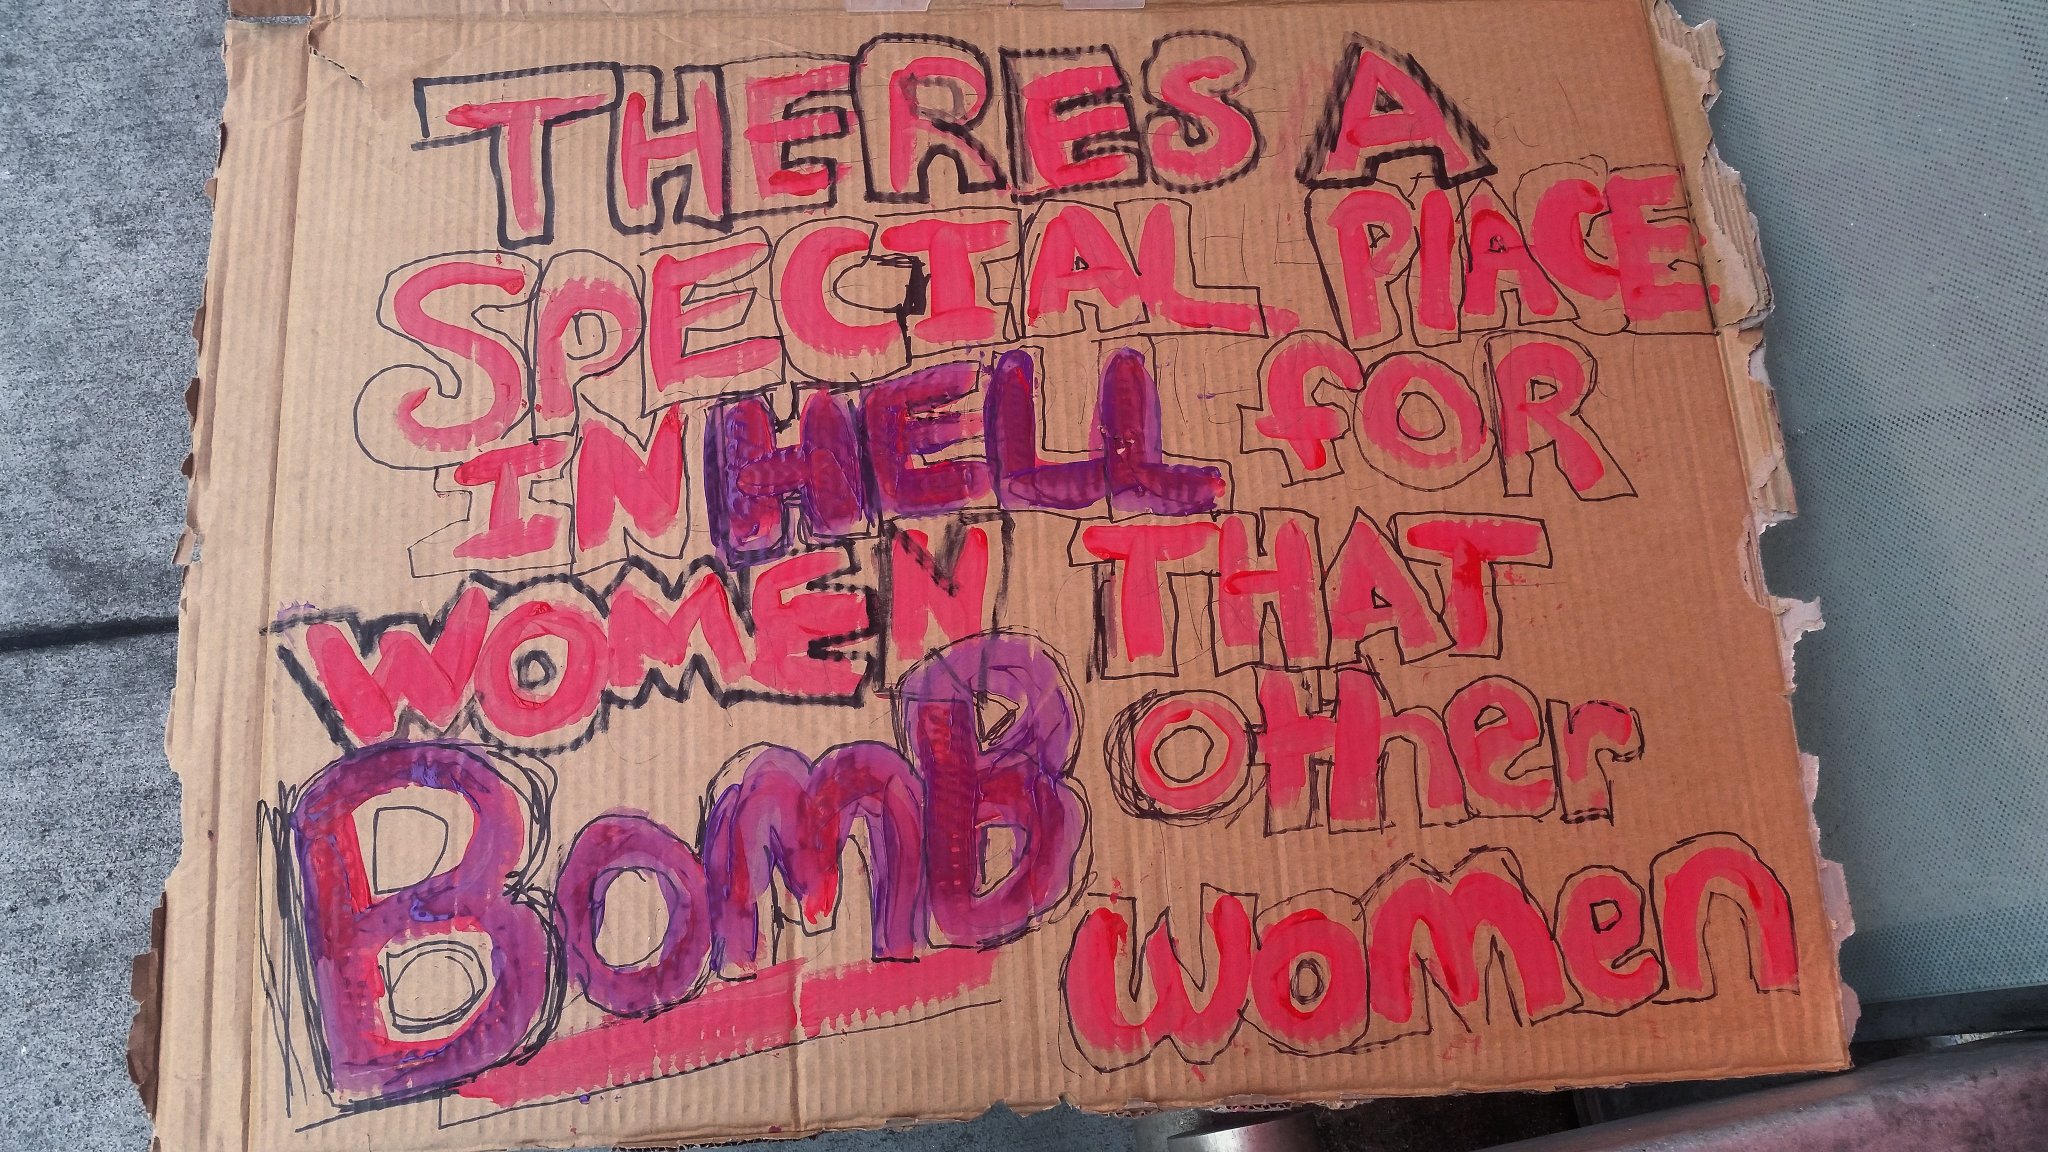 THERES A
SPECIAL PlACE
IN HELL fOR
WOMEN THAT
BomB other
women